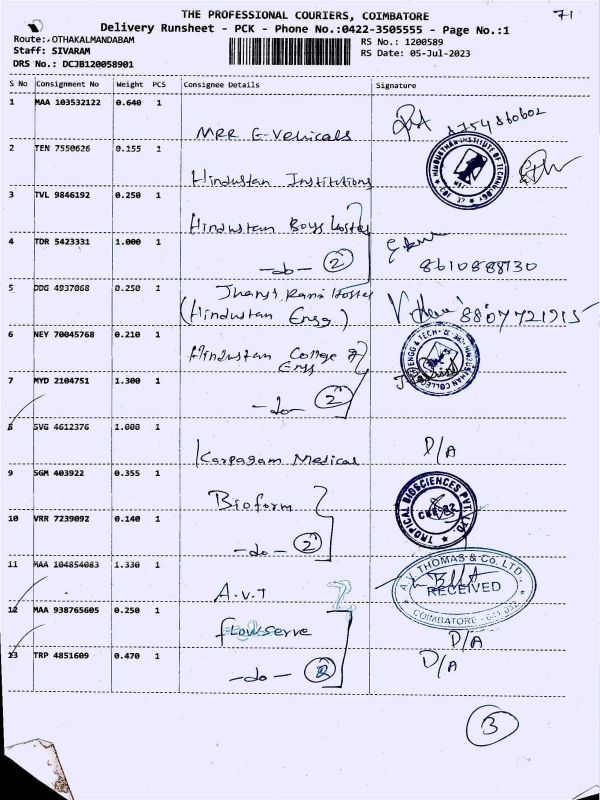 71
THE PROFESSIONAL COURIERS, COIMBATORE
Delivery Runsheet - PCK - Phone No.:0422-3505555 - Page No.:1
Route: OTHAKALMANDABAM
Staff: SIVARAM
DRS No.: DCJB120058901
RS No.: 1200589
RS Date: 05-Jul-2023
S No Consignment No Weight PCS Consignee Details Signature
1 MAA 103532122 0.640 1
MRR E-Vehicals
8754860602
2 TEN 7550626 0.155 1
Hindustan Institutions
HINDUSTHAN INSTITUTE OF TECHNOLOGY
3 TVL 9846192 0.250 1
Hindustan Boys Hostel
4 TDR 5423331 1.000 1
-do- 2
8610888730
5 DDG 4937068 0.250 1
Rani Hostel
(Hindustan Engg)
8807721915
6 NEY 70045768 0.210 1
Hindustan College of Engg
7 MYD 2104751 1.300 1
-do- 2
8 SVG 4612376 1.000 1
Karpagam Medical
D/A
9 SGM 403922 0.355 1
Bioform
TROPICAL BIOSCIENCES PVT. LTD
10 VRR 7239092 0.140 1
-do- 2
11 MAA 104854083 1.330 1
A.V.T
A.V. THOMAS & Co. LTD.,
RECEIVED
COIMBATORE
12 MAA 938765605 0.250 1
flowserve
D/A
13 TRP 4851609 0.470 1
-do- 2
D/A
3